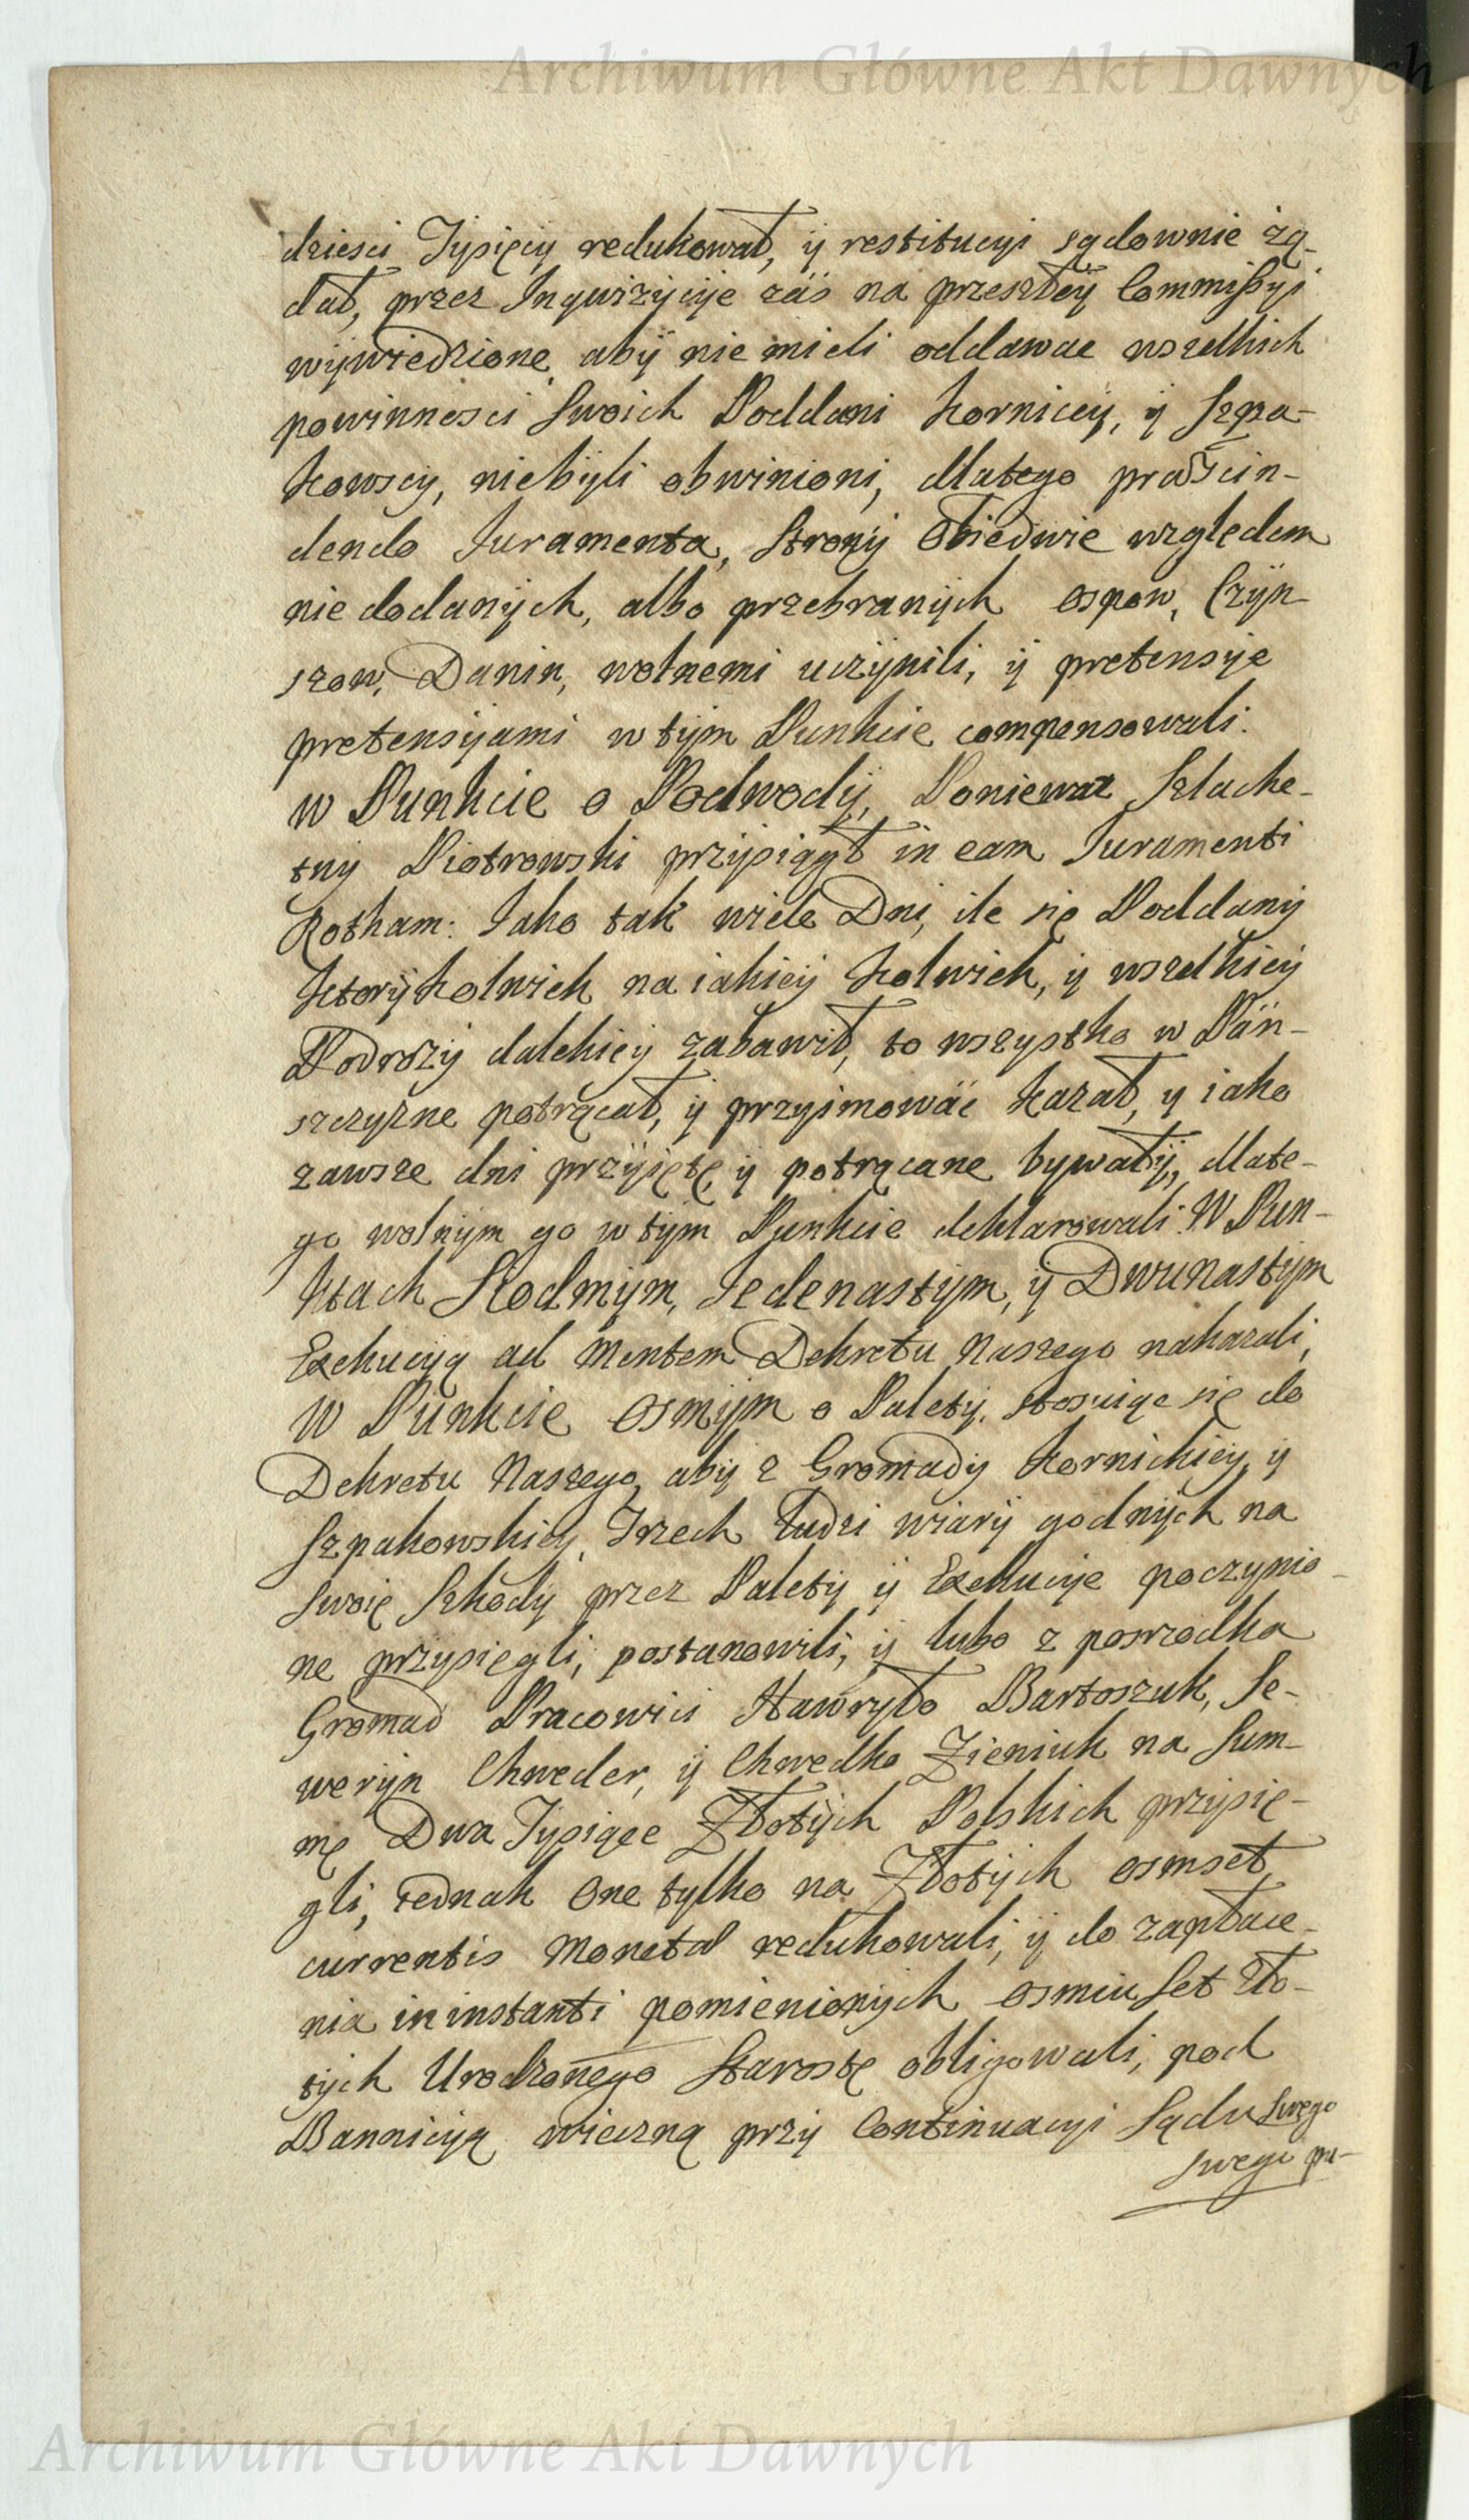 Archiwum Główne Akt Dawnych
dziesci Tysięcy redukował, ÿ restitucyi sądownie żą-
dał, przez Inqwizycyie zás na przeszłeÿ Commißyi
wÿwiedzione, abÿ nie mieli oddawac wszelkich
powinnosci Swoich Poddani Korniccÿ, ÿ Szpa-
kowscy, niebÿli obwinioni, dlatego præscin-
dendo Juramenta, Stronÿ Obiedwie względem
nie dodanÿch, albo przebranÿch Ospow, Czÿn-
szow, Danin, wolnemi uczÿnili, ÿ pretensÿe
pretensÿami w tÿm Punkcie compensowali.
w Punkcie o Podwodÿ, Poniewaz Szlache-
tny Piotrowski przÿsiągł in eam Juramenti
Rotham: Jako tak wiele Dni, ile się Poddanÿ
ktorÿkolwiek na iakieÿ kolwiek, ÿ wszelkieÿ
Podrozÿ dalekieÿ zabawił, to wszystko w Pán-
szczyzne potrącał, ÿ przyimowác kazał, y iako
zawsze dni przÿięte, ÿ potrącane bywałÿ, dlate-
go wolnÿm go w tÿm Punkcie deklarowali. W Pun-
ktach Siodmÿm, Jedenastÿm, ÿ Dwunastÿm
Exekucyą ad Mentem Dekretu Naszego nakazali,
W Punkcie Osmÿm o Paletÿ, stosuiąc się do
Dekretu Naszego, abÿ z Gromadÿ Kornickieÿ, ÿ
Szpakowskieÿ, Trzech Ludzi wiarÿ godnÿch na
Swoię Szkodÿ przez Paletÿ ÿ Exekucye poczynio-
ne przysięgli, postanowili, ÿ lubo z posrzodka
Gromad Pracowici Hawryło Bartoszuk, Se-
werÿn Chweder, ÿ Chwedko Zieniuk na Sum-
mę Dwa Tysiące Złotÿch Polskich przÿsię-
gli, iednak One tylko na Złotÿch osmset
currentis Monetæ redukowali, ÿ do zapłace-
nia in instanti pomienionÿch osmiu Set Zło-
tÿch Urodzonego Starostę obligowali, pod
Bannicÿą wieczną przÿ Continuacyi Sądu Swego
swego pu-
Archiwum Główne Akt Dawnych